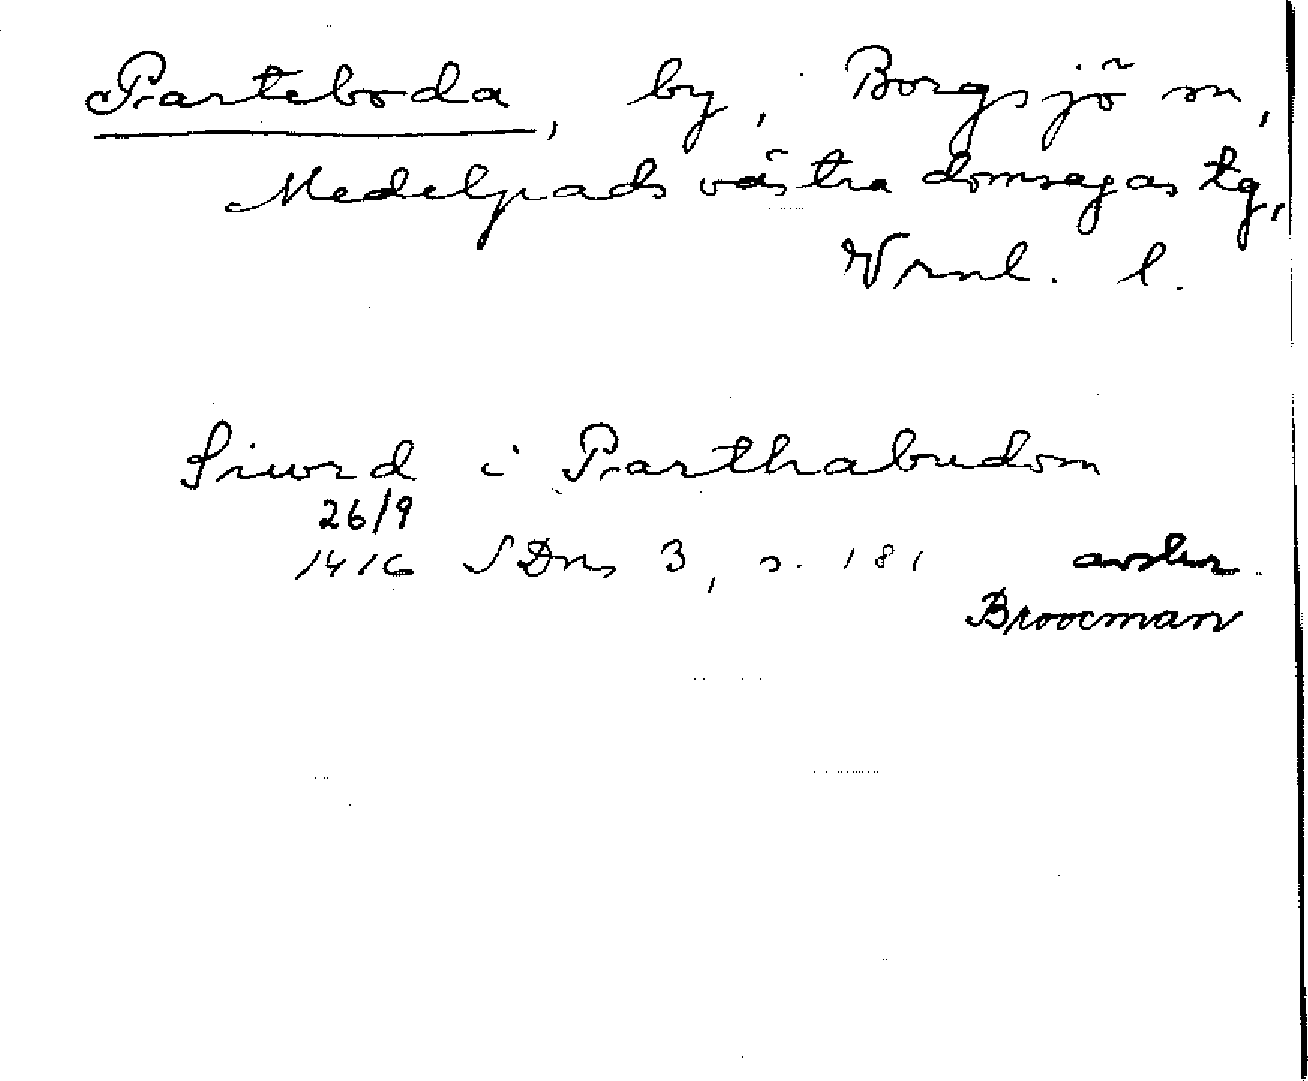 Parteboda, by, Borgsjö sn,
Medelpads västra domsagas tg,
Vrnl. l.
Siword i Parthabudom
26/9
1416 SDns 3, s. 181 avskr.
Broocman